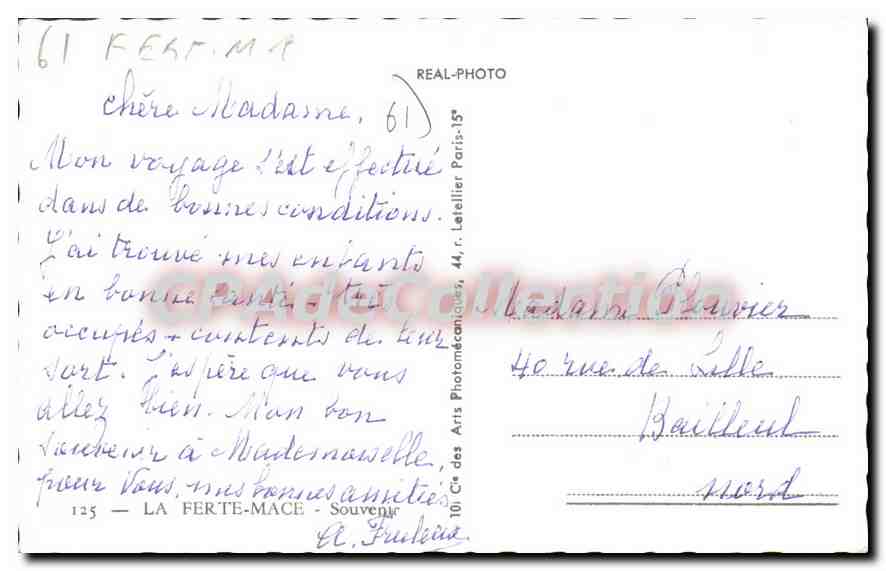 61 FERT. M
REAL-PHOTO
Chère Madame,
61
Mon voyage s'est effectué
dans de bonnes conditions.
J'ai trouvé mes enfants
en bonne santé - très
occupés - contents de leur
sort. J'espère que vous
allez bien. Mon bon
souvenir à Mademoiselle,
pour vous, mes bonnes amitiés
125 — LA FERTE-MACE - Souvenir
A.
Cie des Arts Photomécaniques, 44, r. Letellier Paris-15e
CPADeCollection
Madame Plouvier
40 rue de Lille
Bailleul
Nord